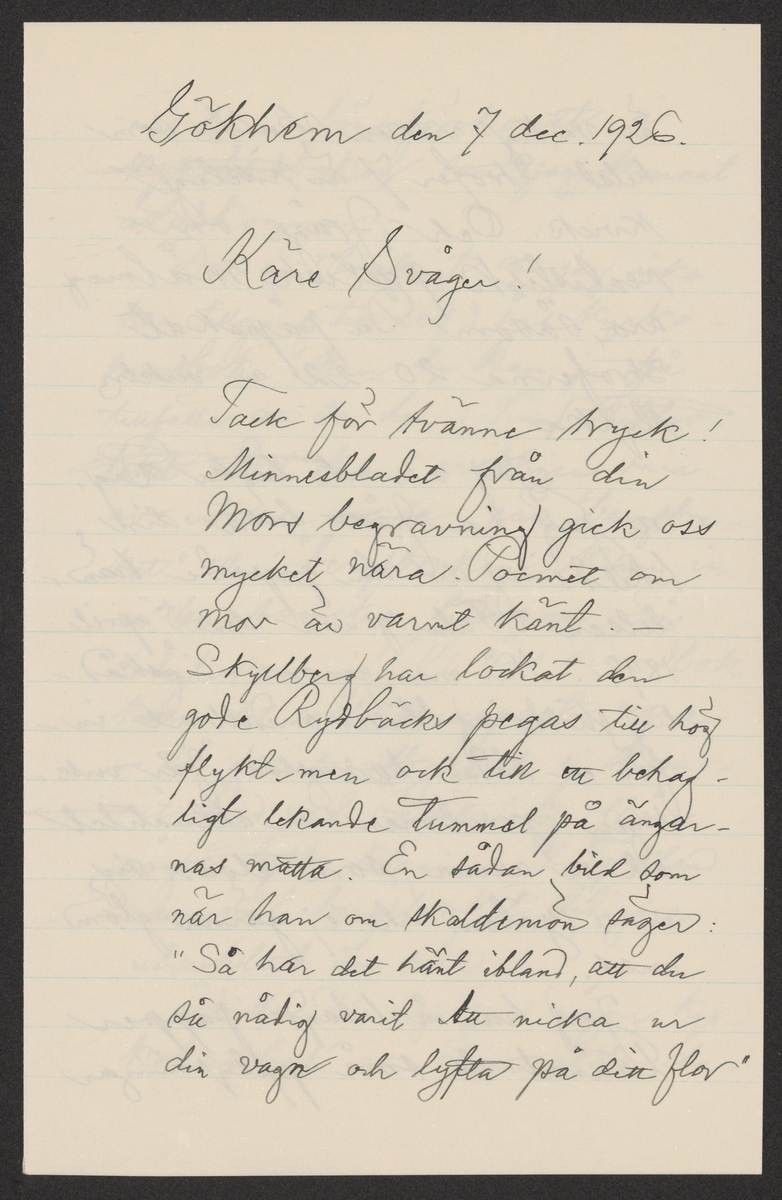 Gökhem den 7 dec. 1926.
Käre Svåger!
Tack för tvänne tryck!
Minnesbladet från din
Mors begravning gick oss
mycket nära. Poemet om
mor är varmt känt. —
Skyllberg har lockat den
gode Rydbäcks pegas till hög
flykt men ock till ett behag-
ligt lekande tummel på ängar-
nas matta. En sådan bild som
när han om skaldemön säger:
"Så har det hänt ibland, att du
så nådig varit att nicka ur
din vagn och lyfta på ditt flor"